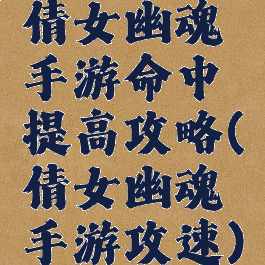 倩女幽魂
手游命中
提高攻略(
倩女幽魂
手游攻速)